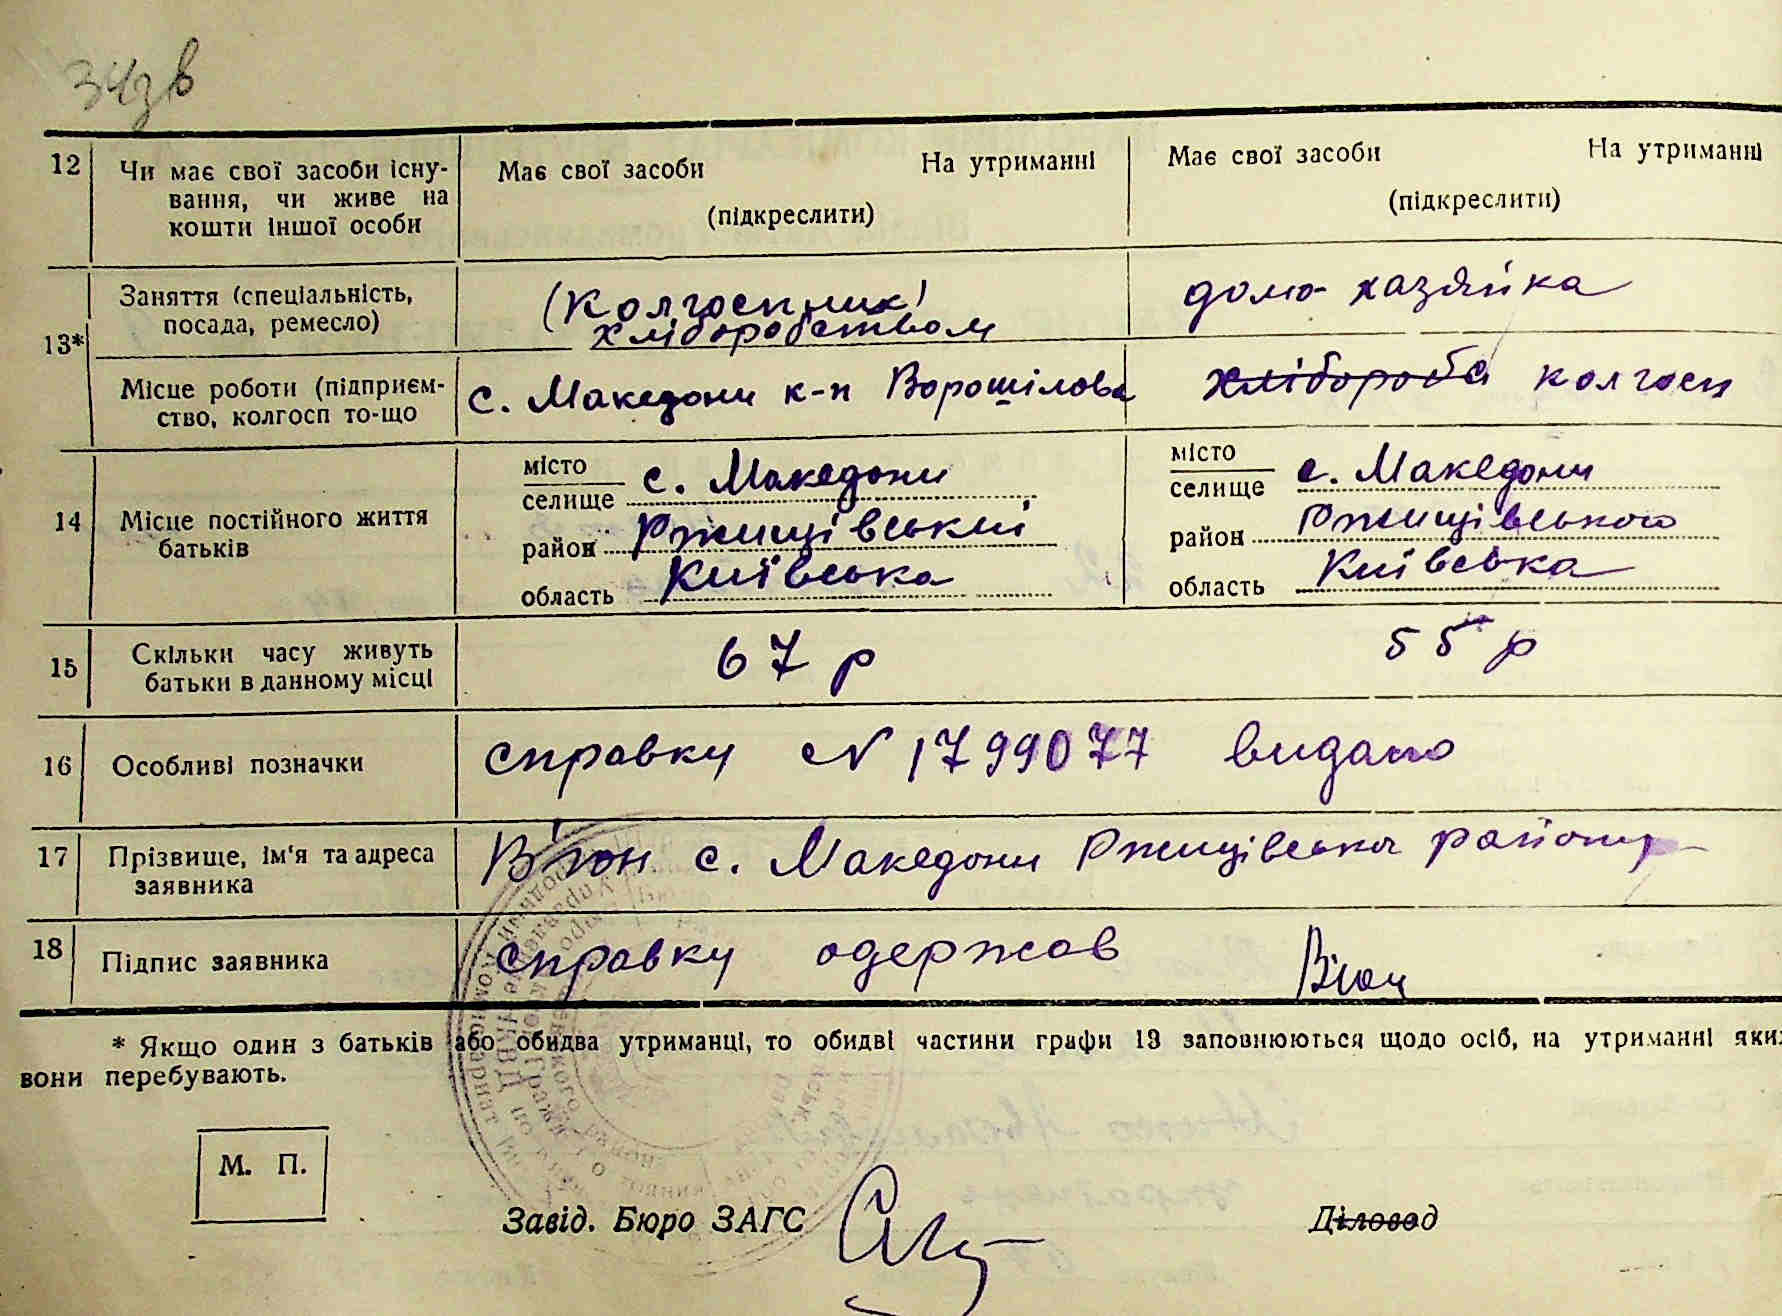 34зв
12 Чи має свої засоби існу-
вання, чи живе на
кошти іншої особи
Має свої засоби На утриманні
(підкреслити)
Має свої засоби На утриманні
(підкреслити)
13*
Заняття (спеціальність,
посада, ремесло)
(Колгоспник)
хліборобством
домо хазяйка
Місце роботи (підприєм-
ство, колгосп то-що
с. Македони к-п Ворошілова
хлібороба колгосп
14 Місце постійного життя
батьків
місто
селище с. Македони
район Ржищівський
область Київська
місто
селище с. Македони
район Ржищівського
область Київська
15 Скільки часу живуть
батьки в данному місці
67 р
55 р
16 Особливі позначки
справку N 1799077 видано
17 Прізвище, ім'я та адреса
заявника
В'юн с. Македони Ржищівська району
18 Підпис заявника
справку одержав В'юн
* Якщо один з батьків або обидва утриманці, то обидві частини графи 13 заповнюються щодо осіб, на утриманні яких
вони перебувають.
М. П.
Завід. Бюро ЗАГС
Діловод